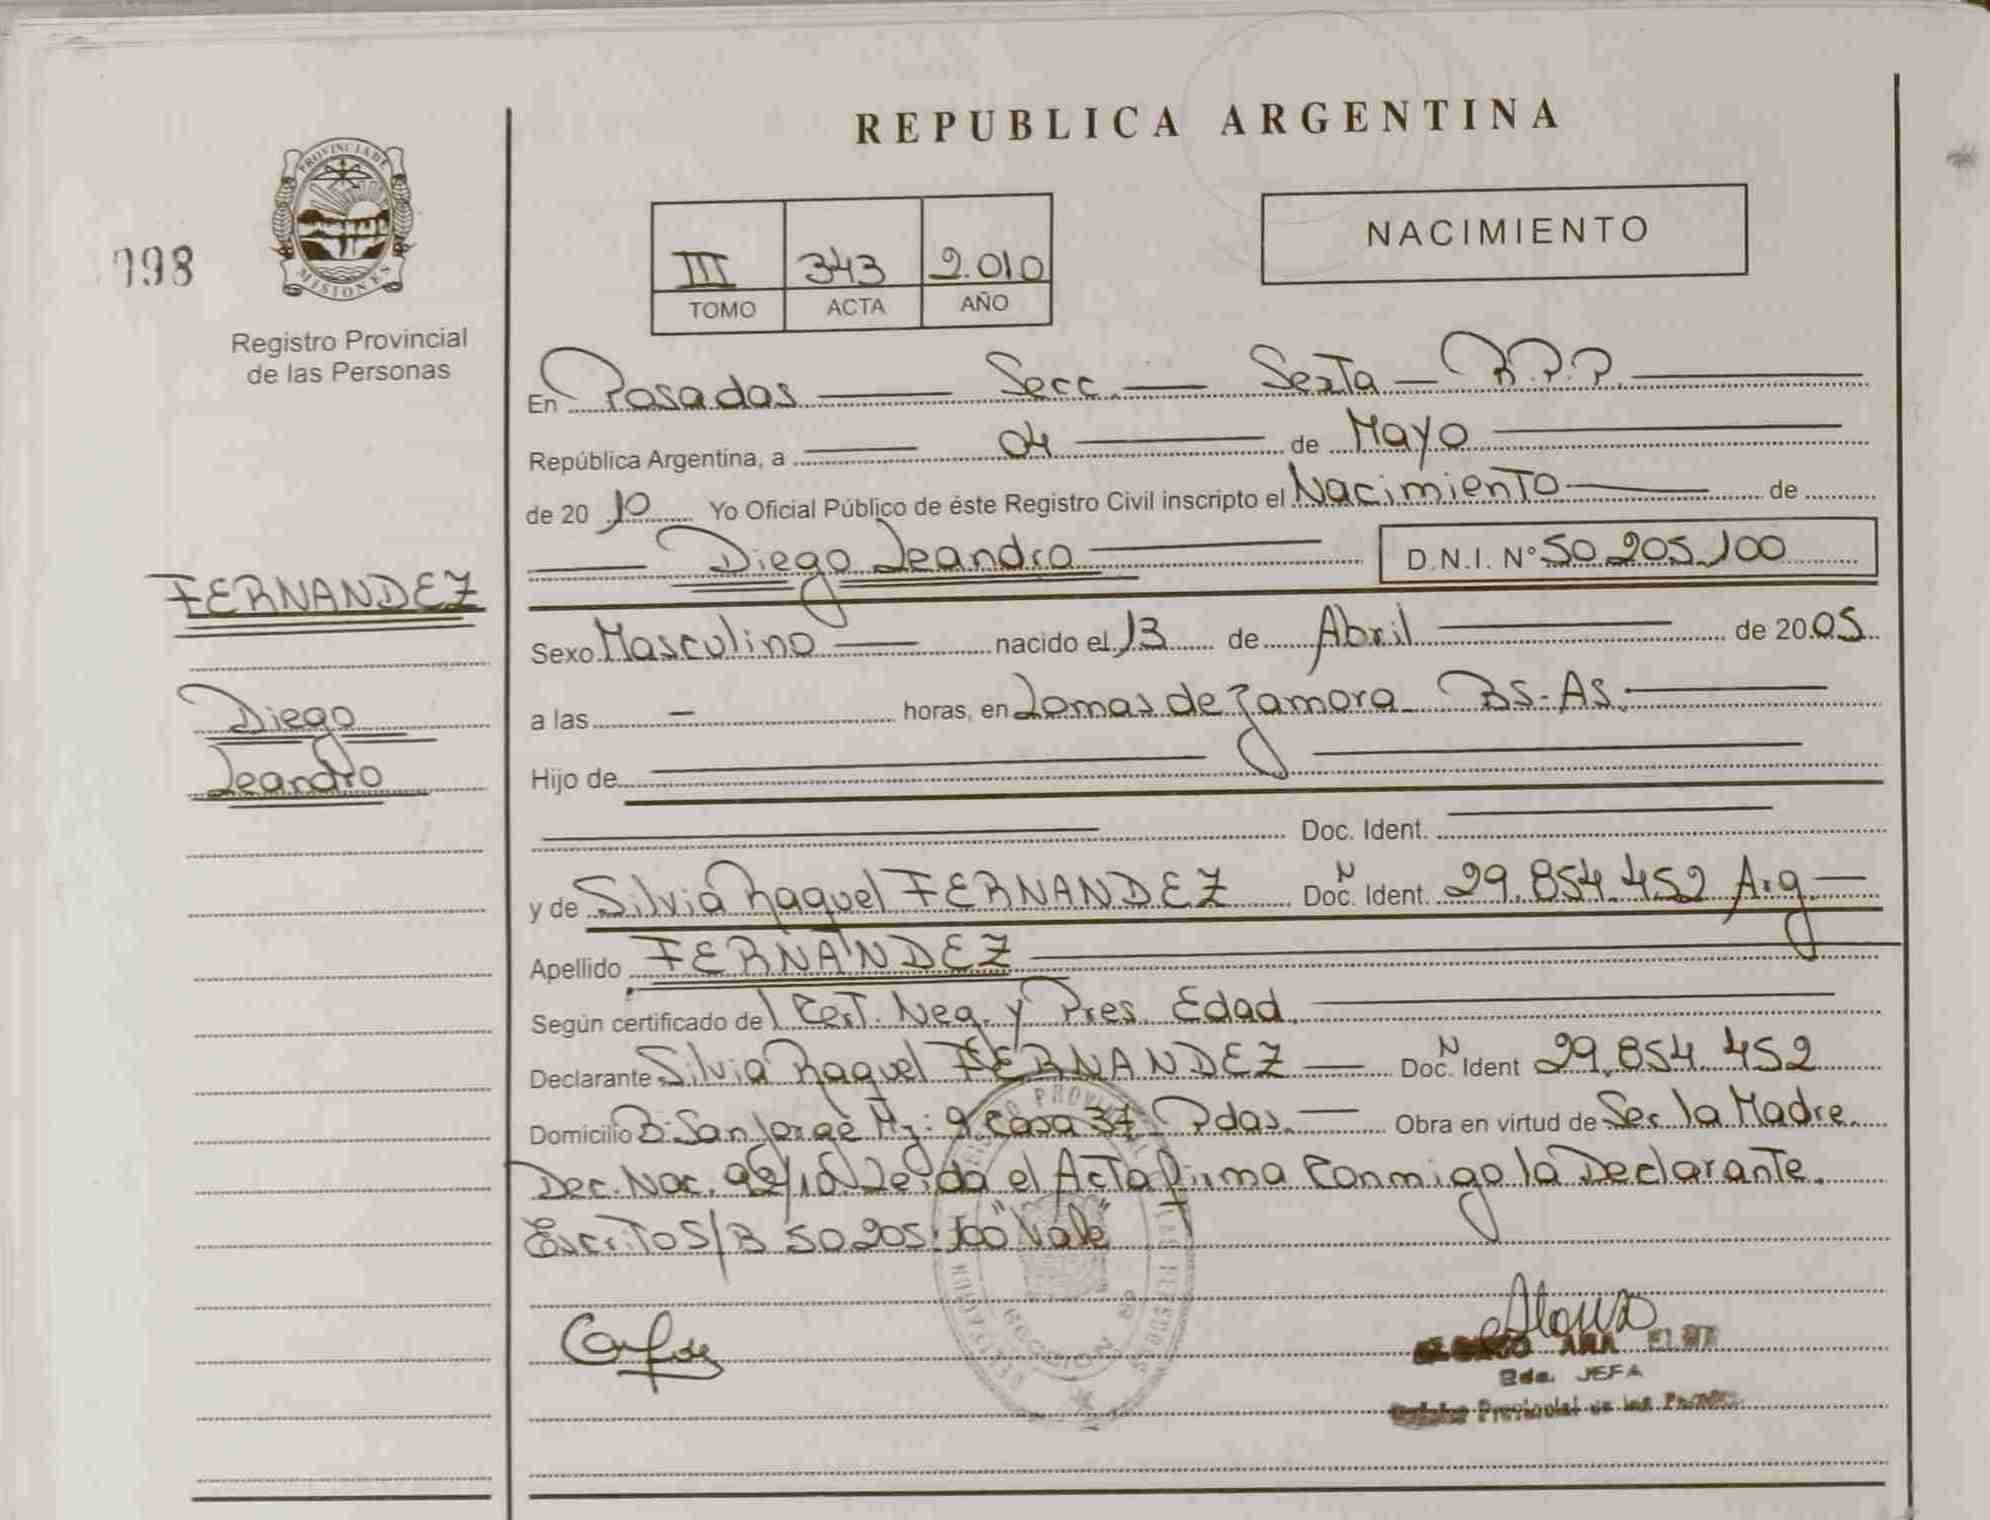 REPUBLICA ARGENTINA
PROVINCIA DE
MISIONES
198
Registro Provincial
de las Personas
III 343 2.010
TOMO ACTA AÑO
NACIMIENTO
En Posadas Secc. Sexta R.P.P.
República Argentina, a 04 de Mayo
de 2010 Yo Oficial Público de éste Registro Civil inscripto el Nacimiento de
Diego Leandro D.N.I. N° 50.205.100
FERNANDEZ
Diego
Leandro
Sexo Masculino nacido el 13 de Abril de 2005
a las - horas, en Lomas de Zamora BS-AS.
Hijo de
Doc. Ident.
y de Silvia Raquel FERNANDEZ Doc. N Ident. 29.854.452 Arg
Apellido FERNANDEZ
Según certificado de 1 Cert. Neg. y Pres. Edad.
Declarante Silvia Raquel FERNANDEZ Doc. N Ident 29.854.452
Domicilio B: San Jorge Mz: 9 Casa 37 Pdas. Obra en virtud de Ser la Madre.
Dec. Nac. /10. Leída el Acta firma Conmigo la Declarante.
Escrito S/B 50.205.100 "Vale"
SECCION 6a
ANA
Bda. JEFA
Provincial de las